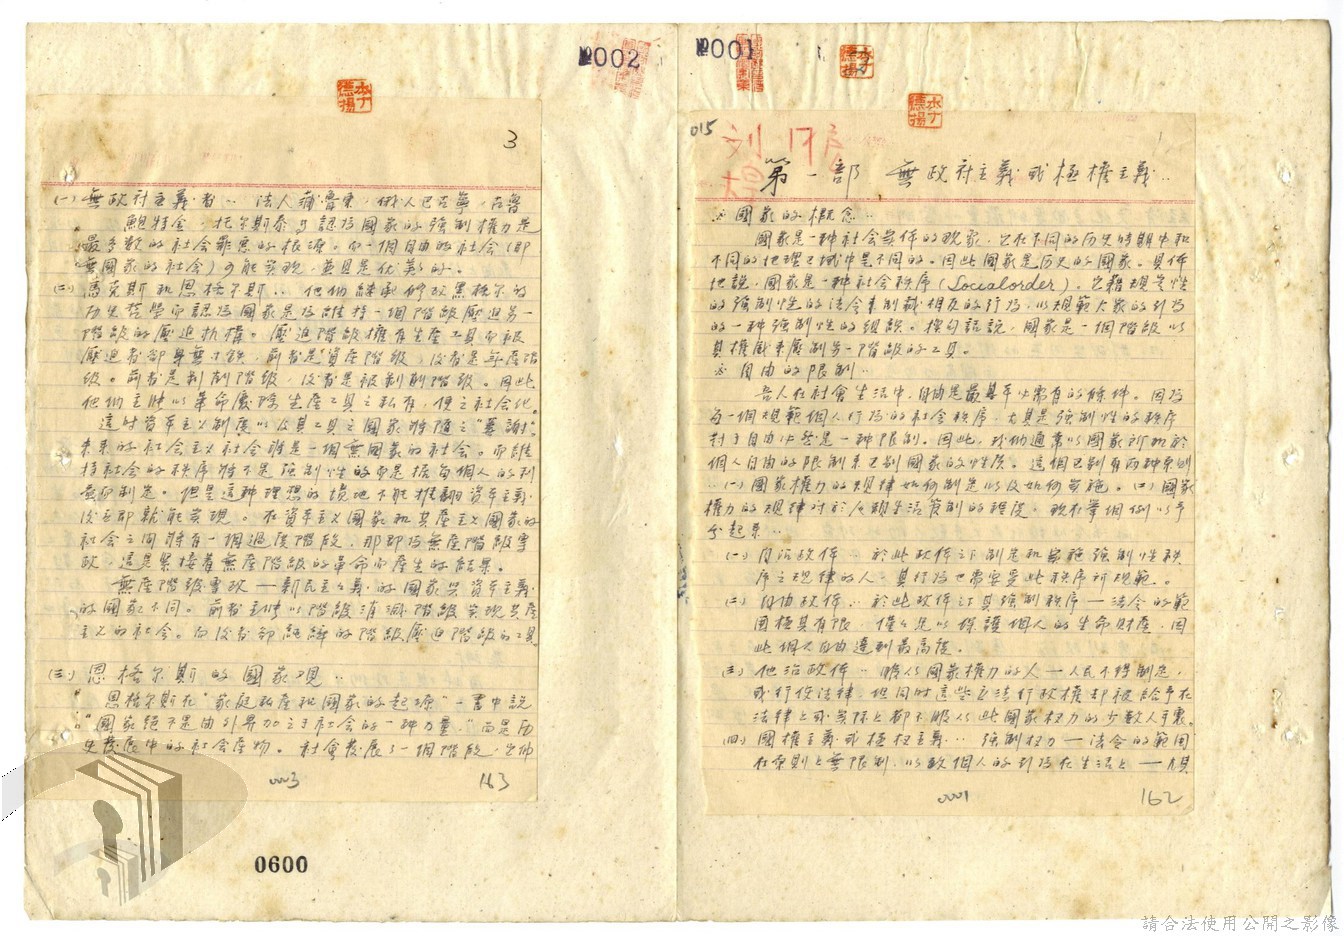 №001
015
1
第一部 無政社主義或極權主義..
國家的概念..
國家是一种社会關係的現象，它在不同的历史時期中和
不同的地理区域中是不同的。因此國家是历史的國家。具体
地說，國家是一种社会秩序(Socialorder)，它藉規定性
的強制性的法令來制裁相反的行為，以規範大家的行為
的一种強制性的組織。換句話說，國家是一個階級以
其權威來壓制另一階級的工具。
自由的限制..
吾人在社會生活中，自由是最其年必需有的條件。因為
每一個規範個人行為的社会秩序，尤其是強制性的秩序
對于自由必然是一种限制。因此，我们通常以國家所加於
個人自由的限制來区别國家的性质。這個区别有兩种原則
..(一)國家權力的規律如何制定以及如何实施。(二)國家
權力的規律对於人類生活管制的程度，現在舉個例以予
分起來..
(一)自治政体..於此政体之下制定和实施強制性秩
序之規律的人，其行為也需要受此秩序所規範。
(二)自由政体..於此政体之下其強制秩序—法令的範
圍極其有限，僅足以保護個人的生命財產，因
此個人自由達到最高度。
(三)他治政体..服从國家權力的人—人民不得制定，
或行使法律，但同时這些立法行政權却被給予在
法律上或实际上都不服从此國家权力的少数人手裏。
(四)國權主義或極权主義..強制权力—法令的範圍
在原則上無限制，以致個人的行為在生活上—尤其
0001
162
№002
3
(一)無政社主義者..法人蒲魯東，俄人巴古寧，古魯
鮑特金，托尔斯泰等認為國家的強制權力是
最多數的社会罪惡的根源。而一個自由的社会(即
無國家的社会)可能实现，並且是优美的。
(二)馮克斯和恩格尔斯..他们継承修改黑格尔的
历史哲學而認為國家是為維持一個階級壓迫另一
階級的壓迫机構。壓迫階級權有生產工具而被
壓迫者卻身無寸鉄，前者是資產階級，後者是無產階
級。前者是剝削階級，後者是被剝削階級。因此
他们主張以革命廢除生產工具之私有，使之社会化。
這时資本主义制度以及其工具之國家将随之"萎謝"。
未来的社会主义社会雖是一個無國家的社会。而維
持社会的秩序将不是強制性的而是據每個人的利
益而制定。但是這种理想的境地不能推翻資本主義
後立即就能实現。在資本主义國家和共產主义國家的
社会之间将有一個過渡階段，那即為無產階級專
政，這是緊接着無產階級的革命而產生的結果。
無產階級專政—新民主主義的國家與資本主義
的國家不同。前者主張以階級消滅階級实现共產
主义的社会。而後者卻継續的階級壓迫階級的工具
(三)恩格尔斯的國家观..
恩格尔斯在"家庭私產和國家的起源"一書中說
"國家絕不是由外界加之于社会的一种力量，"而是历
史發展中的社会產物。社會發展了一個階段，它仰
0003
163
0600
請合法使用公開之影像